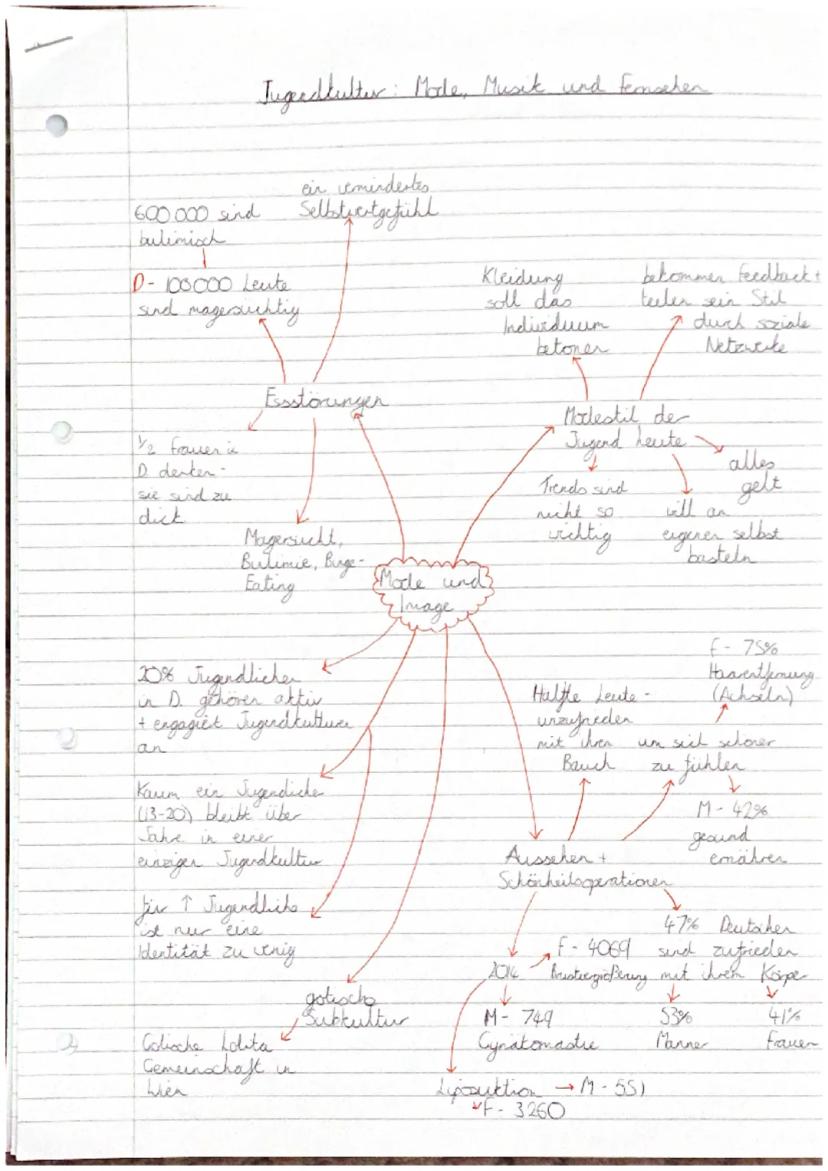 Jugendkultur: Mode, Musik und Fernsehen
ein vermindertes
Selbstwertgefühl
600.000 sind
bulimisch
D - 100000 Leute
sind magersüchtig
Essstörungen
1/2 Frauen in
D. denken -
sie sind zu
dick
Magersucht,
Bulimie, Binge-
Eating
Kleidung
soll das
Individuum
betonen
bekommen Feedback +
teilen sein Stil
durch soziale
Netzwerke
Modestil der
Jugend heute
alles
gelt
Trends sind
nicht so
wichtig
will an
eigenen selbst
basteln
Mode und
Image
20% Jugendlicher
in D. gehören aktiv
+ engagiert Jugendkulturen
an
Kaum ein Jugendlicher
(13-20) bleibt über
Jahre in einer
einzigen Jugendkultur
für ↑ Jugendliche
ist nur eine
Identität zu wenig
gotische
Subkultur
Gotische Lolita
Gemeinschaft in
Wien
Hälfte Leute -
unzufrieden
mit ihren
Bauch
um sich schöner
zu fühlen
F - 75%
Haarentfernung
(Achseln)
M - 42%
gesund
ernähren
Aussehen +
Schönheitsoperationen
47% Deutschen
sind zufrieden
mit ihrem Körper
53%
Männer
41%
Frauen
F - 4069
Brustvergrößerung
M - 749
Gynäkomastie
Liposuktion → M - 551
F - 3260